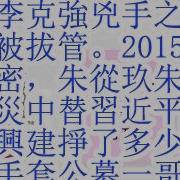 李克強兇手之
被拔管。2015
密，朱從玖朱
災中替習近平
興建掙了多少
手套公募一哥